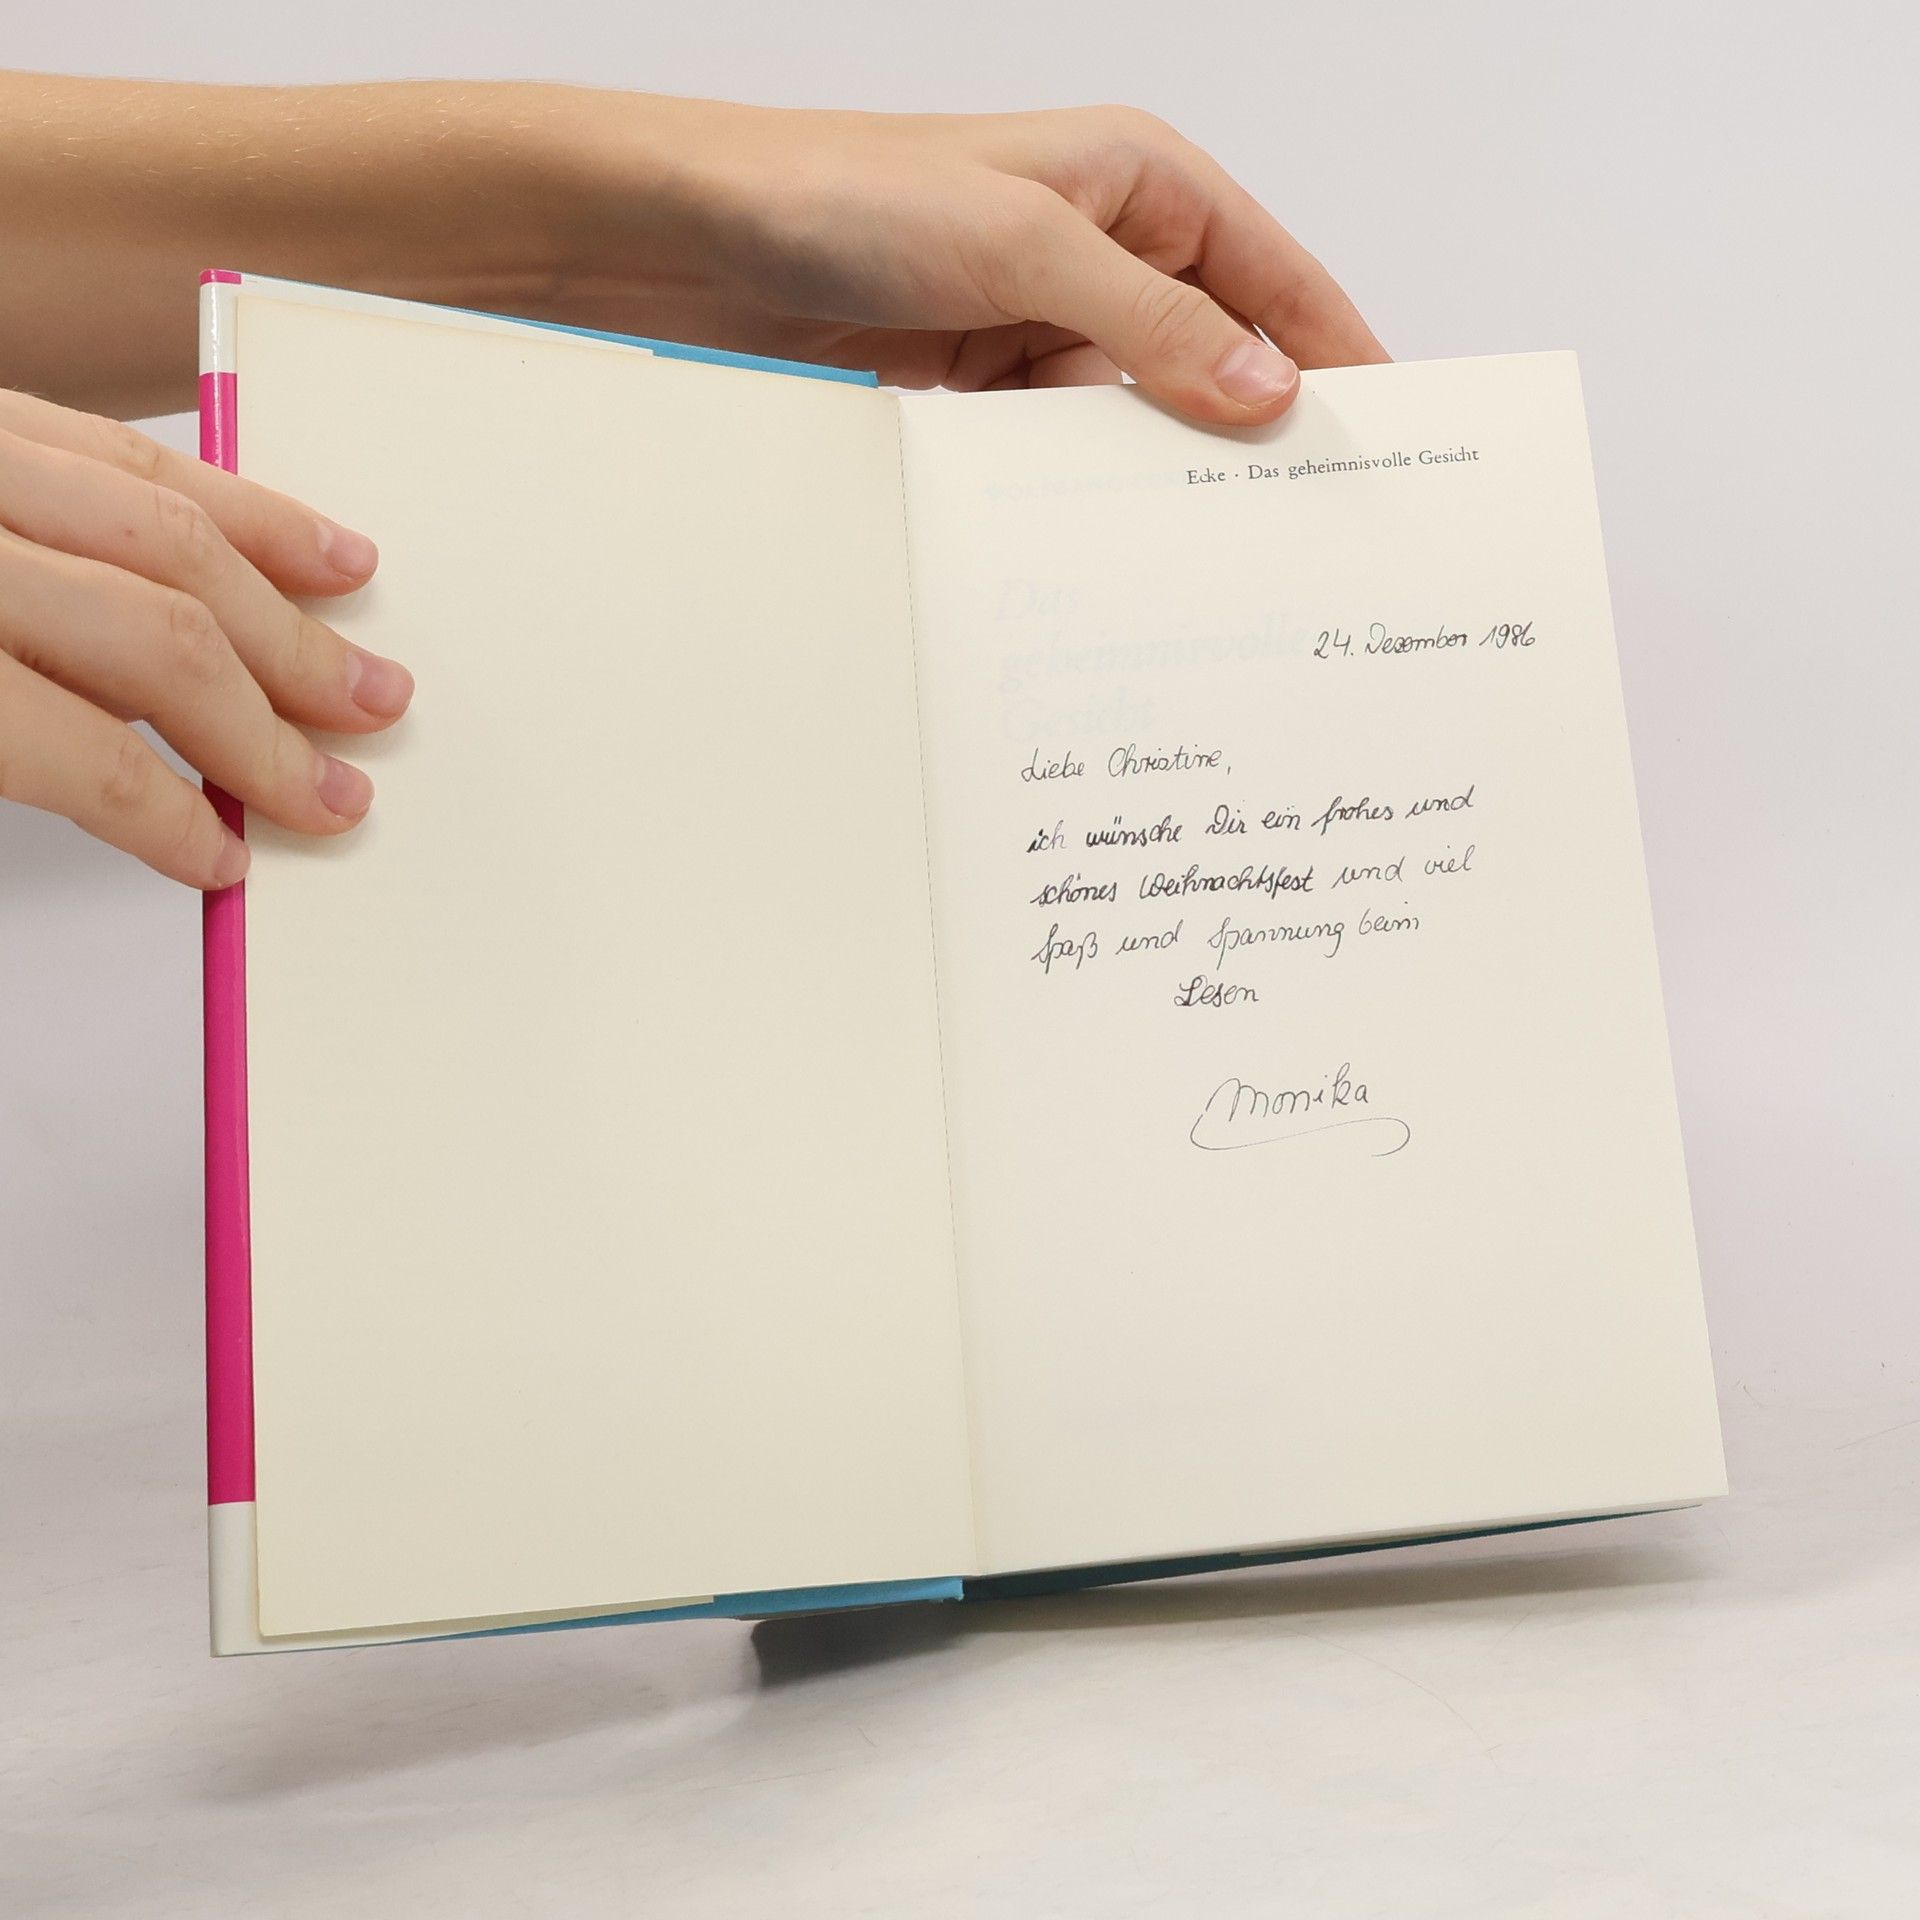 Ecke · Das geheimnisvolle Gesicht
24. Dezember 1986
Das
geheimnisvolle
Gesicht
Liebe Christine,
ich wünsche Dir ein frohes und
schönes Weihnachtsfest und viel
Spaß und Spannung beim
Lesen
Monika